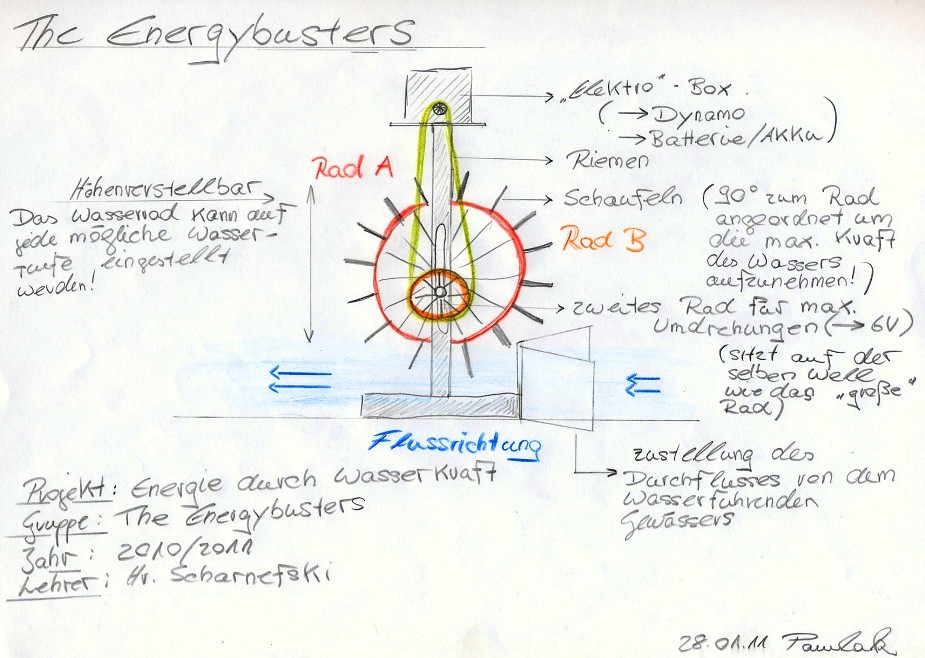 The Energybusters
„Elektro"-Box.
(→Dynamo
→Batterie/Akku)
Riemen
Rad A
Höhenverstellbar
Das Wasserrad kann auf
jede mögliche Wasser-
tiefe eingestellt
werden!
Schaufeln (90° zum Rad
angeordnet um
die max. Kraft
des Wassers
aufzunehmen!)
Rad B
zweites Rad für max.
Umdrehungen (→ 6V)
(sitzt auf der
selben Well
wie das „große"
Rad)
Flussrichtung
zustellung des
Durchflusses von dem
Wasserführenden
Gewässers
Projekt: Energie durch Wasserkraft
Gruppe: The Energybusters
Jahr: 2010/2011
Lehrer: Hr. Scharnefski
28.01.11